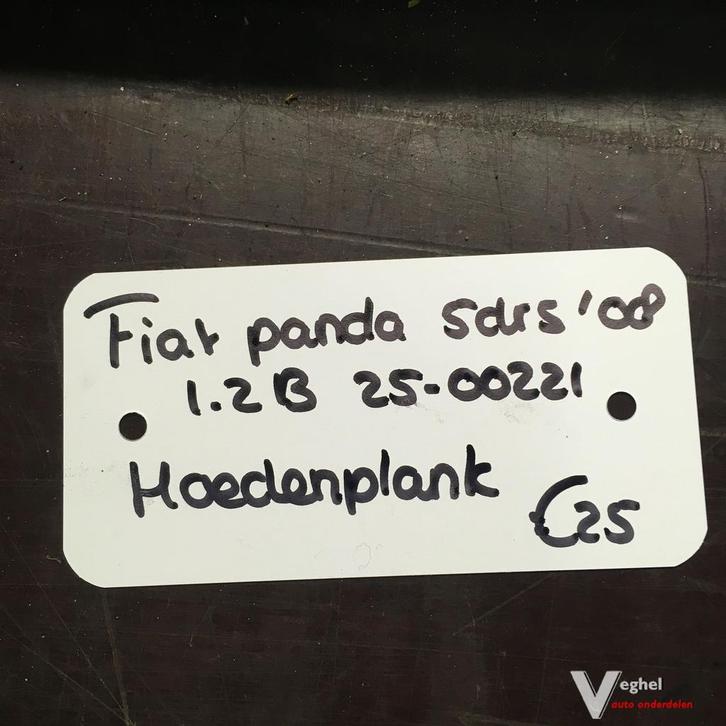 Fiat panda 5drs '08
1.2B 25-00221
Hoedenplank
€25
Veghel
auto onderdelen